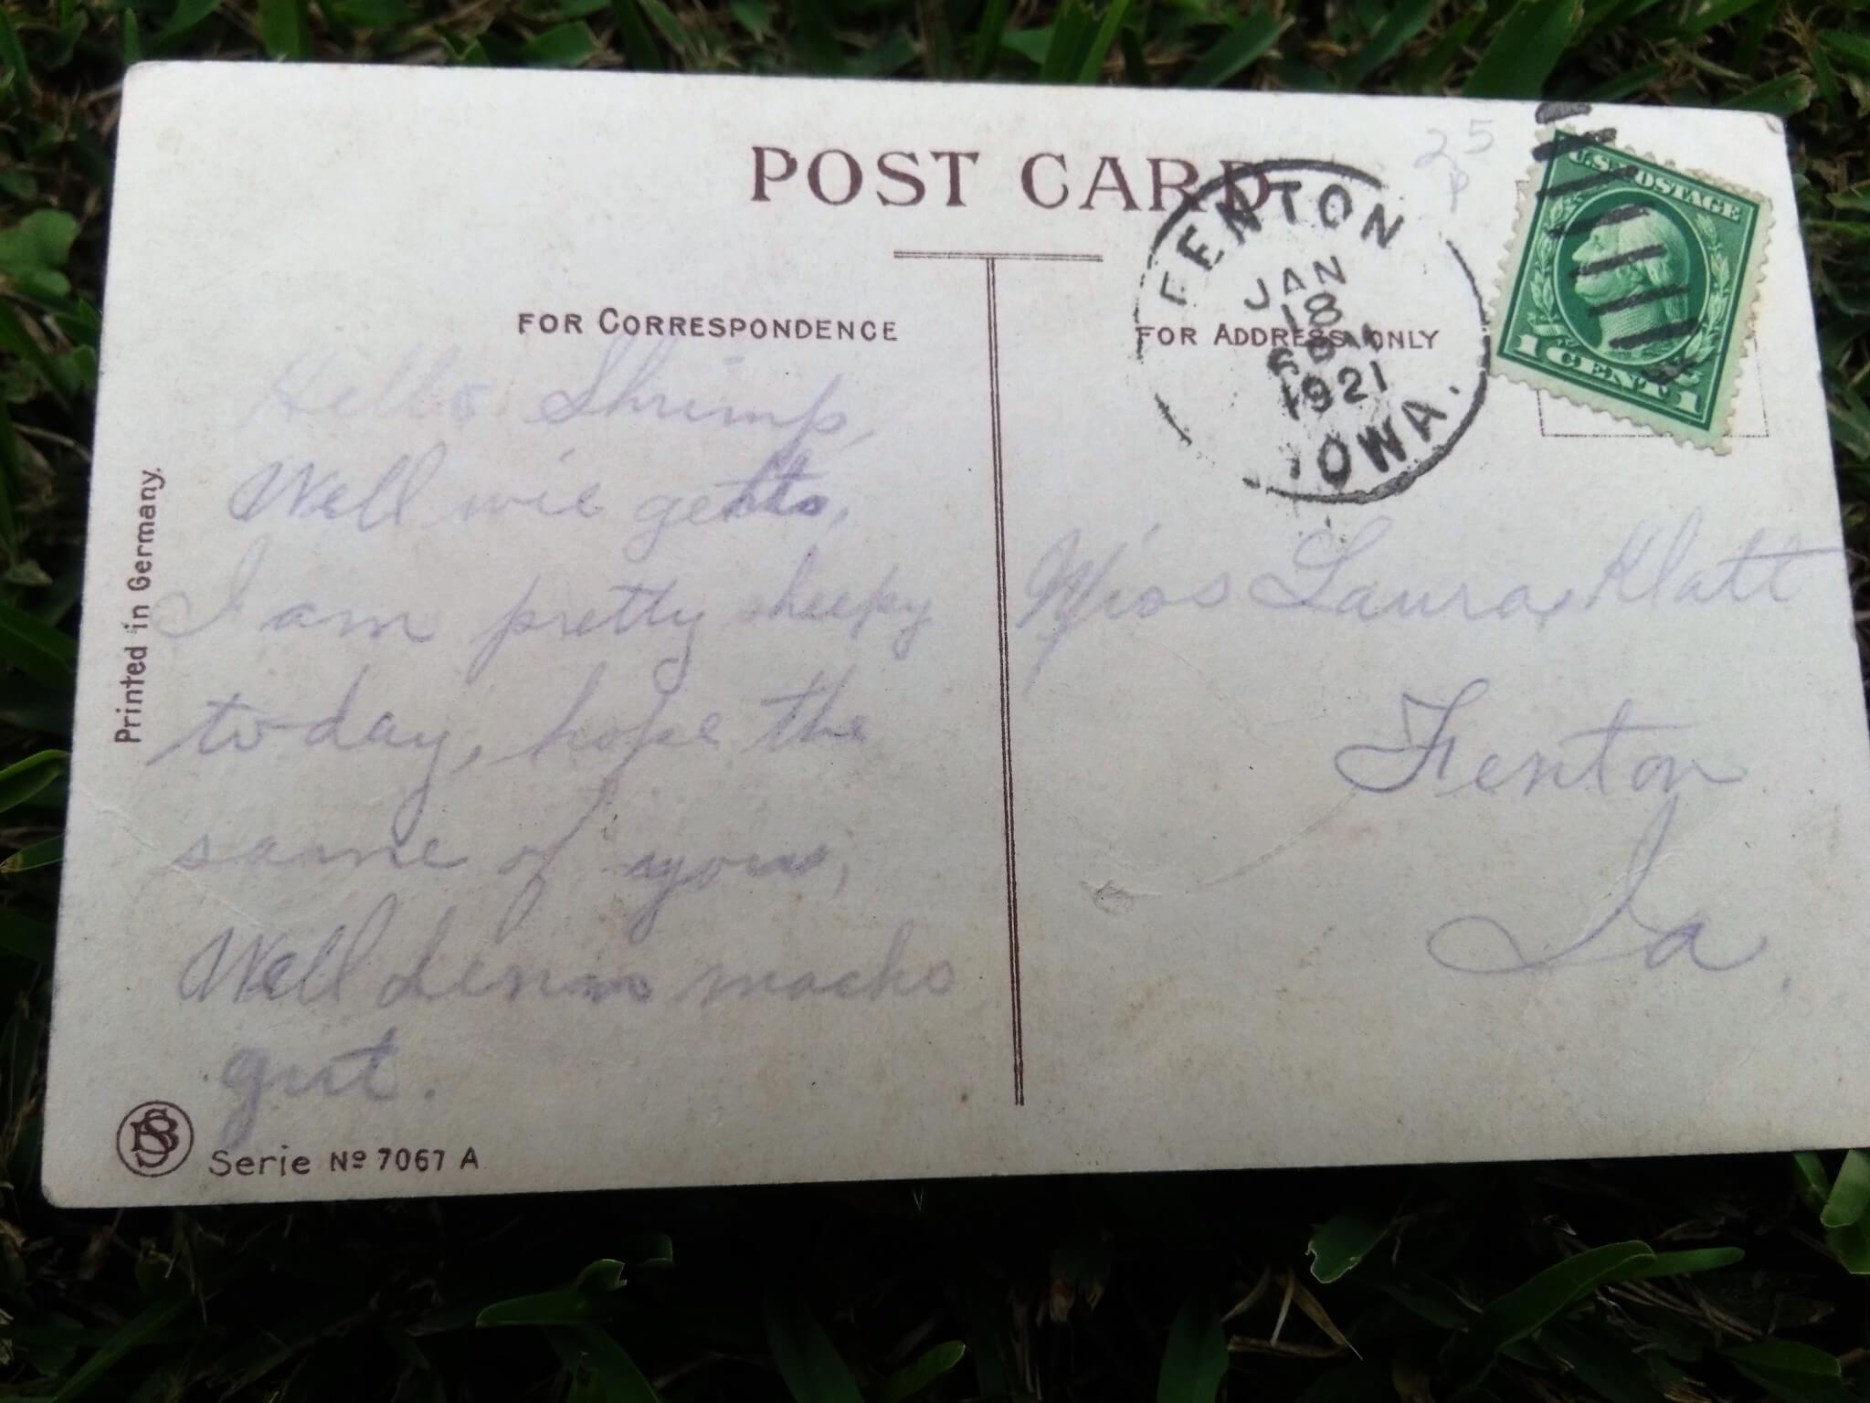 POST CARD
25
FOR CORRESPONDENCE
FOR ADDRESS ONLY
FENTON
JAN
18
1921
IOWA.
U.S. POSTAGE
1 CENT 1
Printed in Germany.
Hello Shrimp,
Well wie gehts,
I am pretty sleepy
to-day, hope the
same of you,
Well machs
gut.
Miss Laura Klatt
Fenton
Ia.
Serie No 7067 A